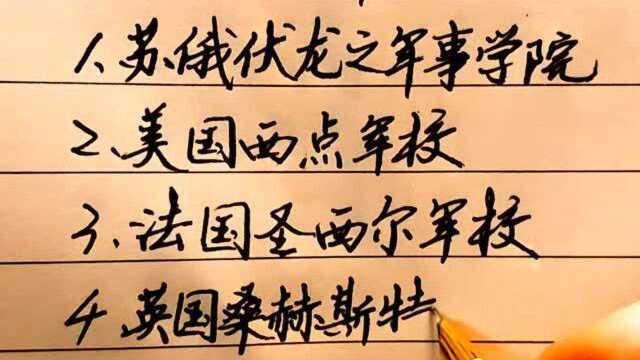 1、苏俄伏龙之军事学院
2、美国西点军校
3、法国圣西尔军校
4、英国桑赫斯特